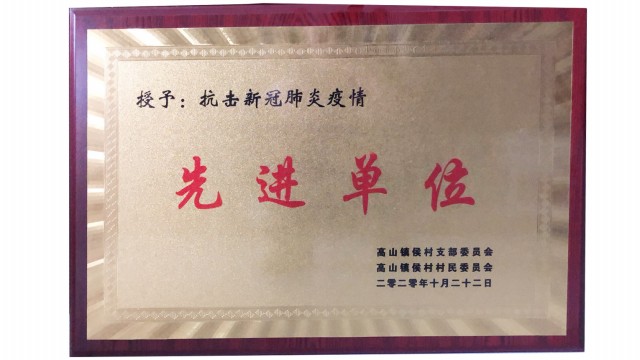 授予：抗击新冠肺炎疫情
先进单位
高山镇侯村支部委员会
高山镇侯村村民委员会
二零二零年十月二十二日